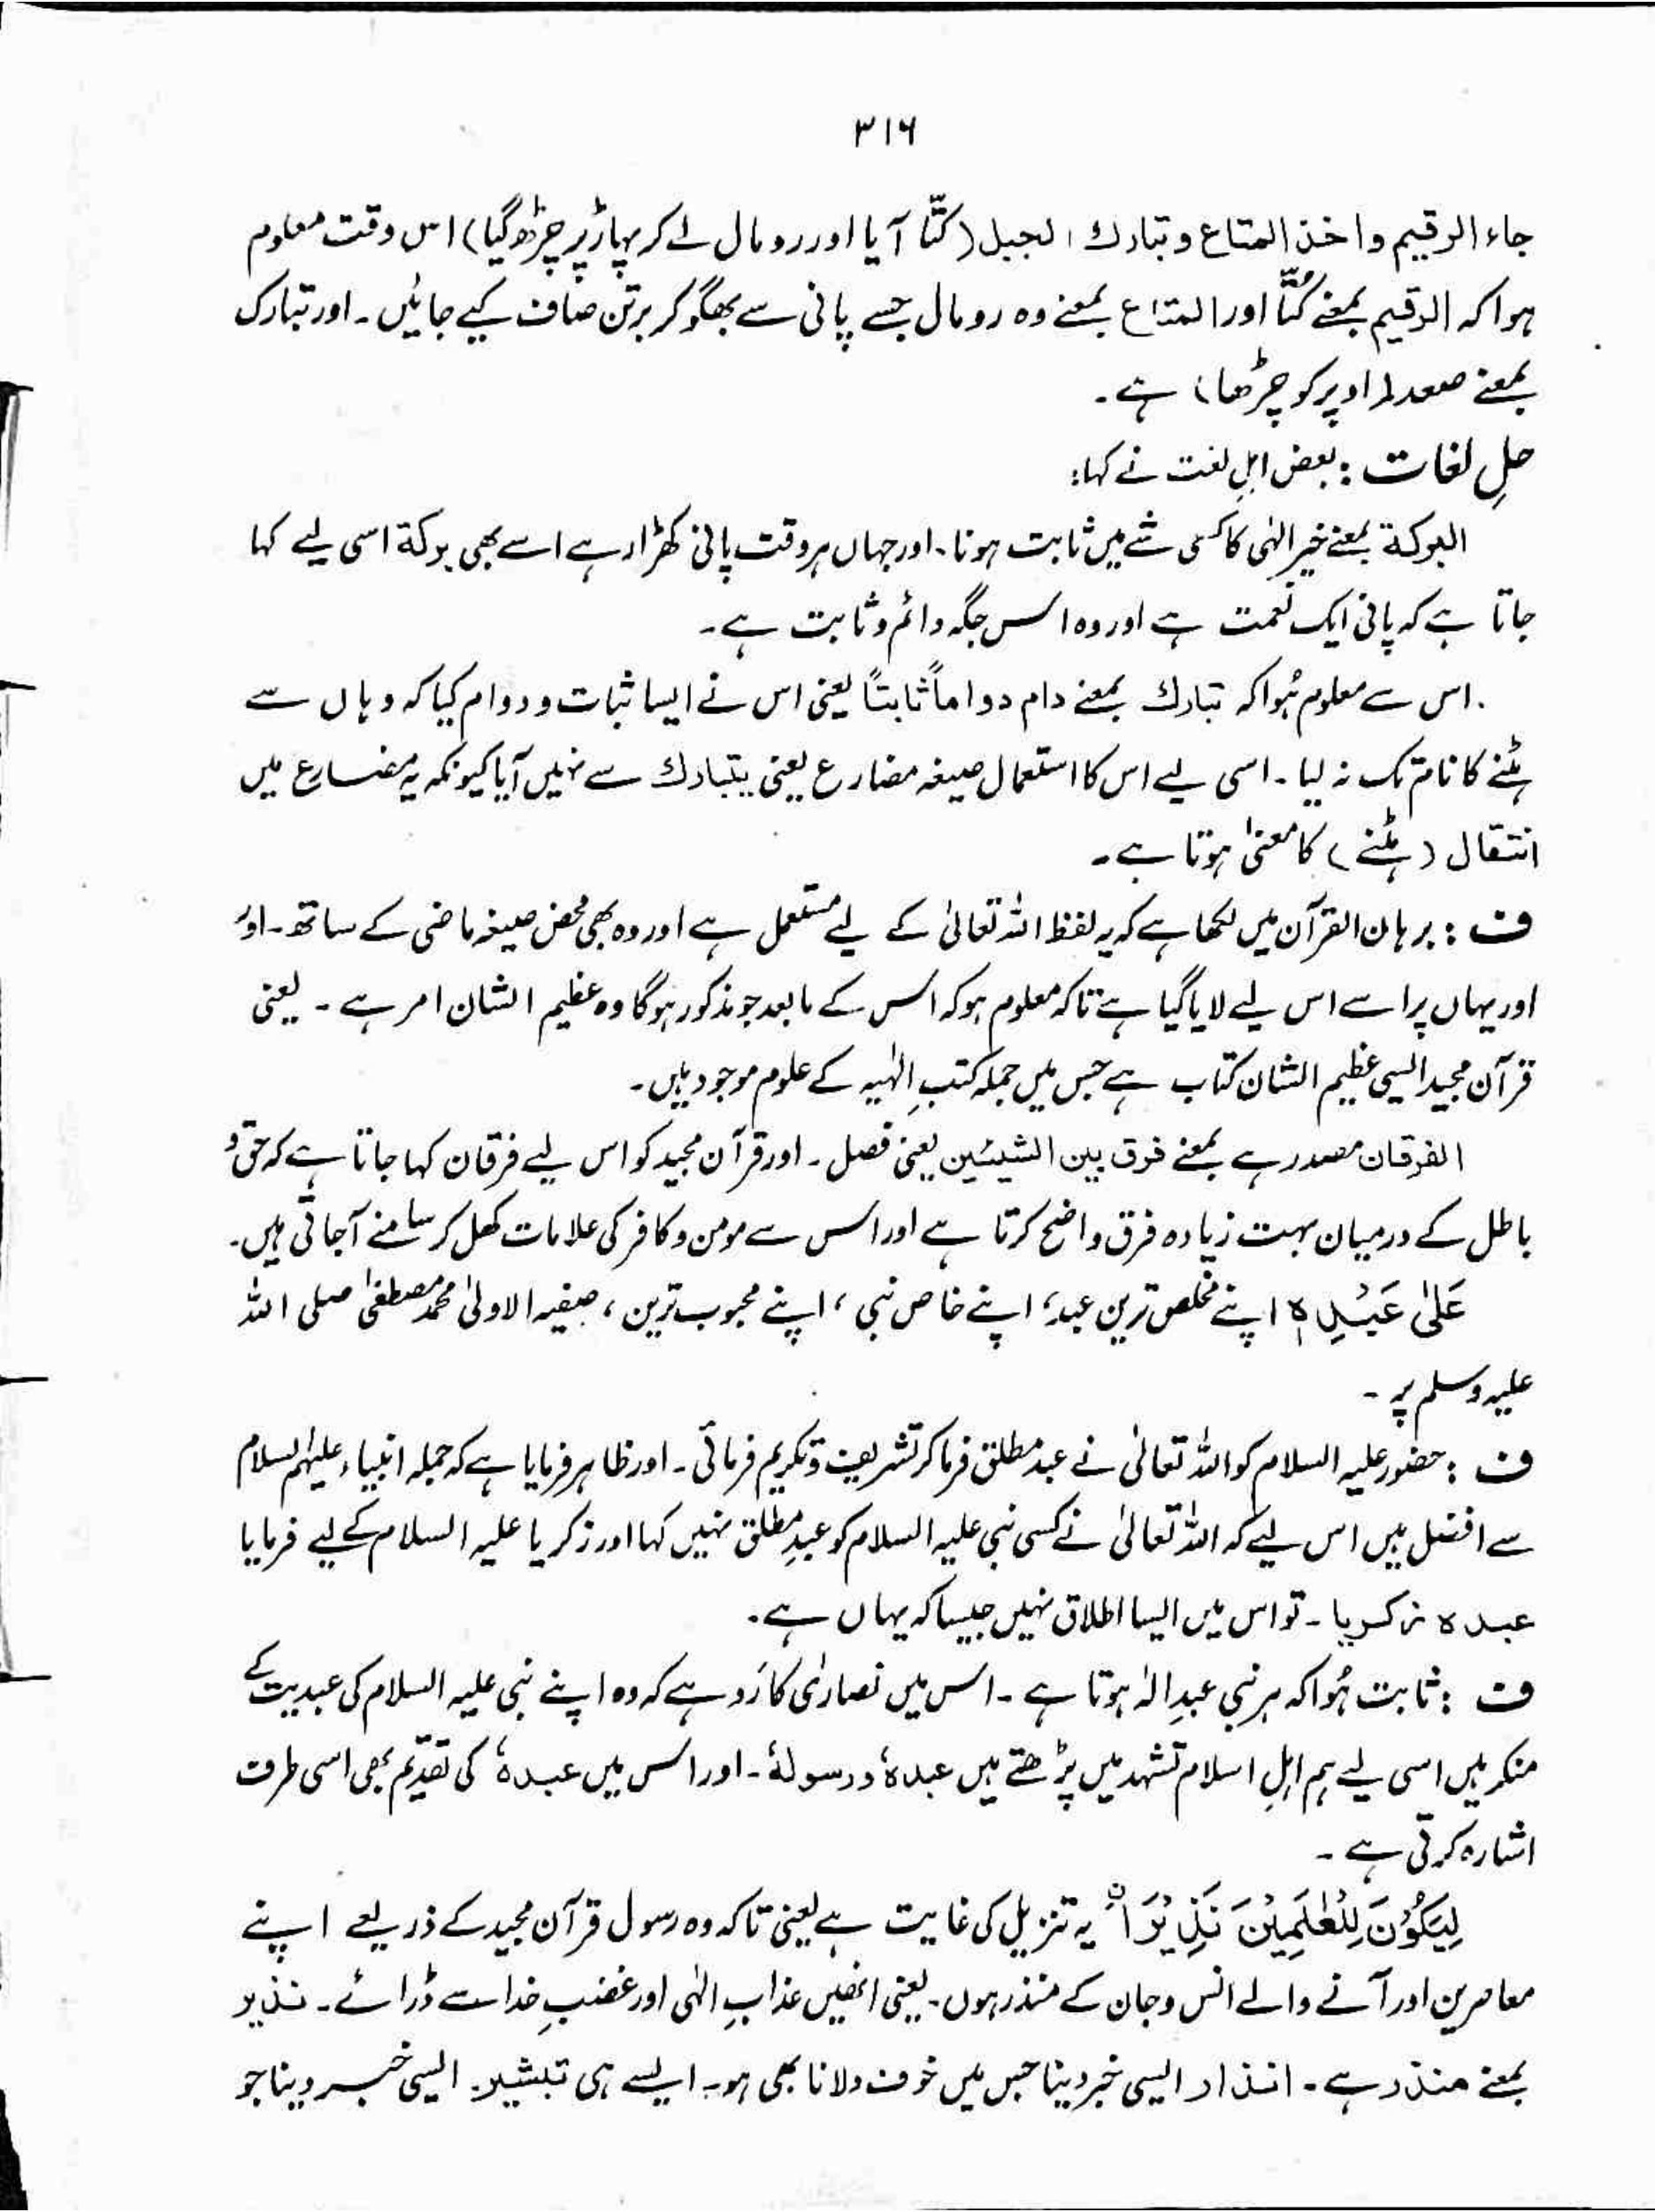 ۳۱۶
جاء الرقيم واخذ المتاع وتبارك الجبل (کتّا آیا اور رومال لے کر پہاڑ پر چڑھ گیا) اس وقت معلوم
ہوا کہ الرقیم بمعنے کُتّا اور المتاع بمعنے وہ رومال جسے پانی سے بھگو کر برتن صاف کیے جائیں۔ اور تبارک
بمعنے صعد (اوپر کو چڑھا) ہے۔
حلِ لغات : بعض اہلِ لغت نے کہا:
البركة بمعنے خیرِ الٰہی کا کسی شے میں ثابت ہونا۔ اور جہاں ہر وقت پانی کھڑا رہے اسے بھی بركة اسی لیے کہا
جاتا ہے کہ پانی ایک نعمت ہے اور وہ اس جگہ دائم و ثابت ہے۔
اس سے معلوم ہُوا کہ تبارك بمعنے دام دواماً ثابتًا یعنی اس نے ایسا ثبات و دوام کیا کہ وہاں سے
ہٹنے کا نام تک نہ لیا۔ اسی لیے اس کا استعمال صیغہ مضارع یعنی یتبارك سے نہیں آیا کیونکہ یہ مضارع میں
انتقال (ہٹنے) کا معنیٰ ہوتا ہے۔
ف : برہان القرآن میں لکھا ہے کہ یہ لفظ اللہ تعالیٰ کے لیے مستعمل ہے اور وہ بھی محض صیغہ ماضی کے ساتھ۔ اور
اور یہاں پر اسے اس لیے لایا گیا ہے تاکہ معلوم ہو کہ اس کے مابعد جو مذکور ہوگا وہ عظیم الشان امر ہے۔ یعنی
قرآن مجید ایسی عظیم الشان کتاب ہے جس میں جملہ کتبِ الٰہیہ کے علوم موجود ہیں۔
الفرقان مصدر ہے بمعنے فرق بین الشیئین یعنی فصل۔ اور قرآن مجید کو اس لیے فرقان کہا جاتا ہے کہ حق و
باطل کے درمیان بہت زیادہ فرق واضح کرتا ہے اور اس سے مومن و کافر کی علامات کھل کر سامنے آجاتی ہیں۔
عَلٰی عَبْدِہٖ اپنے مخلص ترین عبد، اپنے خاص نبی، اپنے محبوب ترین، صفیہ الاولیٰ محمد مصطفیٰ صلی اللہ
علیہ وسلم پر۔
ف : حضور علیہ السلام کو اللہ تعالیٰ نے عبد مطلق فرما کر تشریف و تکریم فرمائی۔ اور ظاہر فرمایا ہے کہ جملہ انبیاء علیہم السلام
سے افضل ہیں اس لیے کہ اللہ تعالیٰ نے کسی نبی علیہ السلام کو عبدِ مطلق نہیں کہا اور زکریا علیہ السلام کے لیے فرمایا
عبدہ زکریا۔ تو اس میں ایسا اطلاق نہیں جیسا کہ یہاں ہے۔
ف : ثابت ہُوا کہ ہر نبی عبدِ الٰہ ہوتا ہے۔ اس میں نصاریٰ کا رَد ہے کہ وہ اپنے نبی علیہ السلام کی عبدیت کے
منکر ہیں اسی لیے ہم اہلِ اسلام تشہد میں پڑھتے ہیں عبدہٗ ورسولہٗ۔ اور اس میں عبدہٗ کی تقدیم بھی اسی طرف
اشارہ کرتی ہے۔
لِیَکُوْنَ لِلْعٰلَمِیْنَ نَذِیْرَاۨ یہ تنزیل کی غایت ہے یعنی تاکہ وہ رسول قرآن مجید کے ذریعے اپنے
معاصرین اور آنے والے انس و جان کے منذر ہوں۔ یعنی انھیں عذابِ الٰہی اور غضبِ خدا سے ڈرائے۔ نذیر
بمعنے منذر ہے۔ انذار ایسی خبر دینا جس میں خوف دلانا بھی ہو۔ ایسے ہی تبشیر۔ ایسی خبر دینا جو